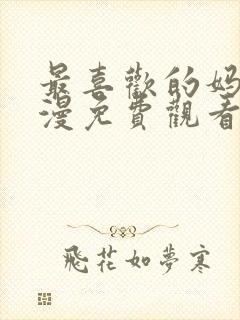 最喜歡的媽
漫免費觀看
飛花如夢寒